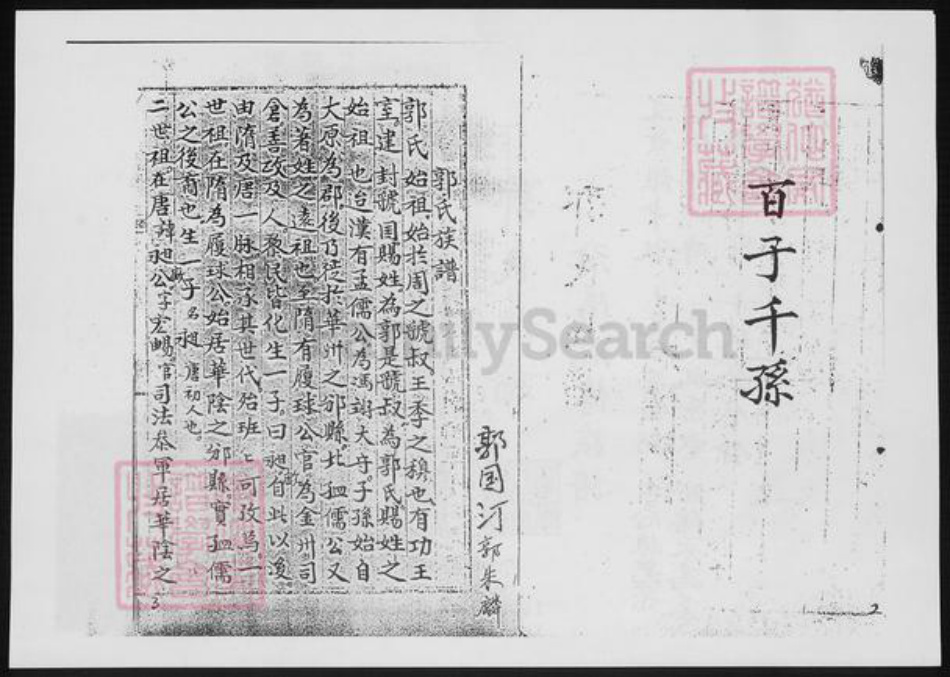 百子千孫
2
郭国河 郭朱麟
郭氏族譜
郭氏始祖始於周之虢叔王季之穆也有功王
室建封虢国賜姓為郭是虢叔為郭氏賜姓之
始祖也迨漢有孟儒公為馮翊大守子孫始自
大原為郡後乃徙於華州之邠縣此孟儒公又
為著姓之遠祖也至隋有履球公官為金州司
倉善政及人黎民皆化生一子曰昶自此以後
由隋及唐一脉相承其世代殆班班可攷焉一
世祖在隋為履球公始居華陰之邠縣實孟儒
公之後裔也生一子名昶唐初人也
二世祖在唐諱昶公字宏暢官司法叅軍居華陰之
3
FamilySearch